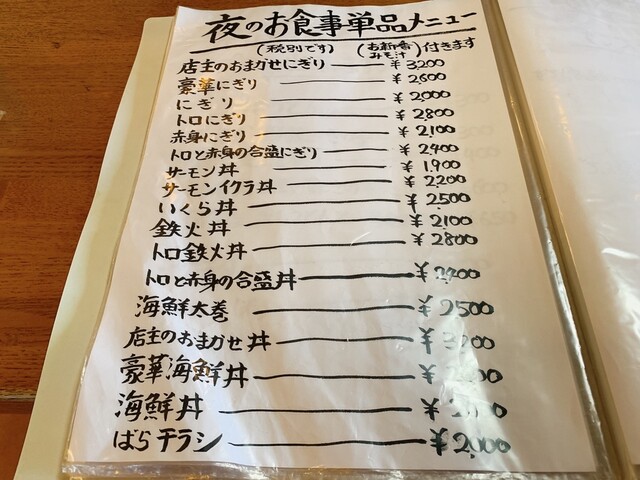 夜のお食事単品メニュー
(税別です) (お新香 みそ汁) 付きます
店主のおまかせにぎり ¥3200
豪華にぎり ¥2600
にぎり ¥2000
トロにぎり ¥2800
赤身にぎり ¥2100
トロと赤身の合盛にぎり ¥2400
サーモン丼 ¥1,900
サーモンイクラ丼 ¥2200
いくら丼 ¥2500
鉄火丼 ¥2100
トロ鉄火丼 ¥2800
トロと赤身の合盛丼 ¥2400
海鮮太巻 ¥2500
店主のおまかせ丼 ¥3200
豪華海鮮丼
海鮮丼
ばらチラシ ¥2,000